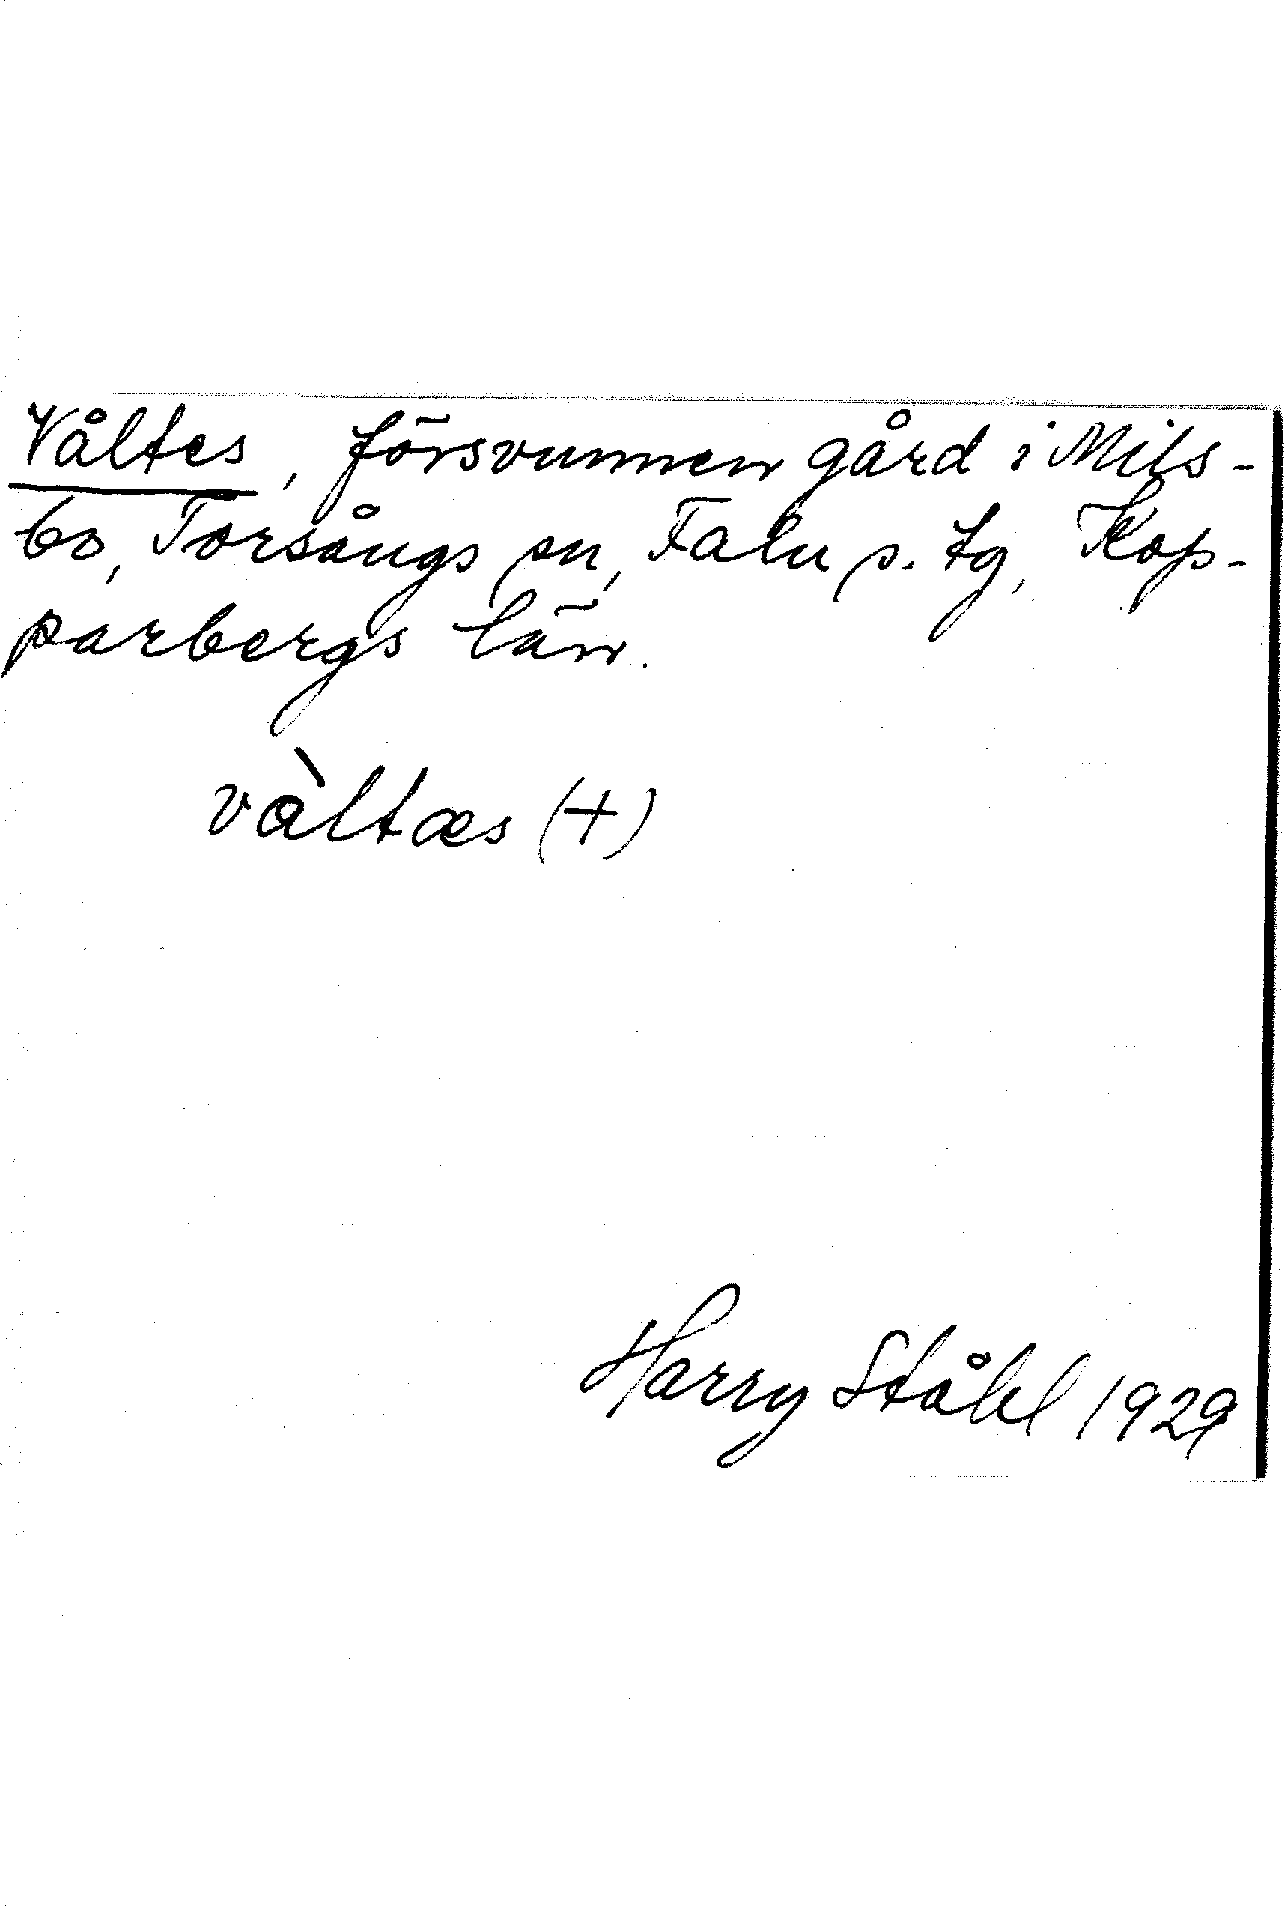 Våltes, försvunnen gård i Mils-
bo, Torsångs sn, Falu s. tg, Kop-
parbergs län.
vàltæs (+)
Harry Ståhl 1929